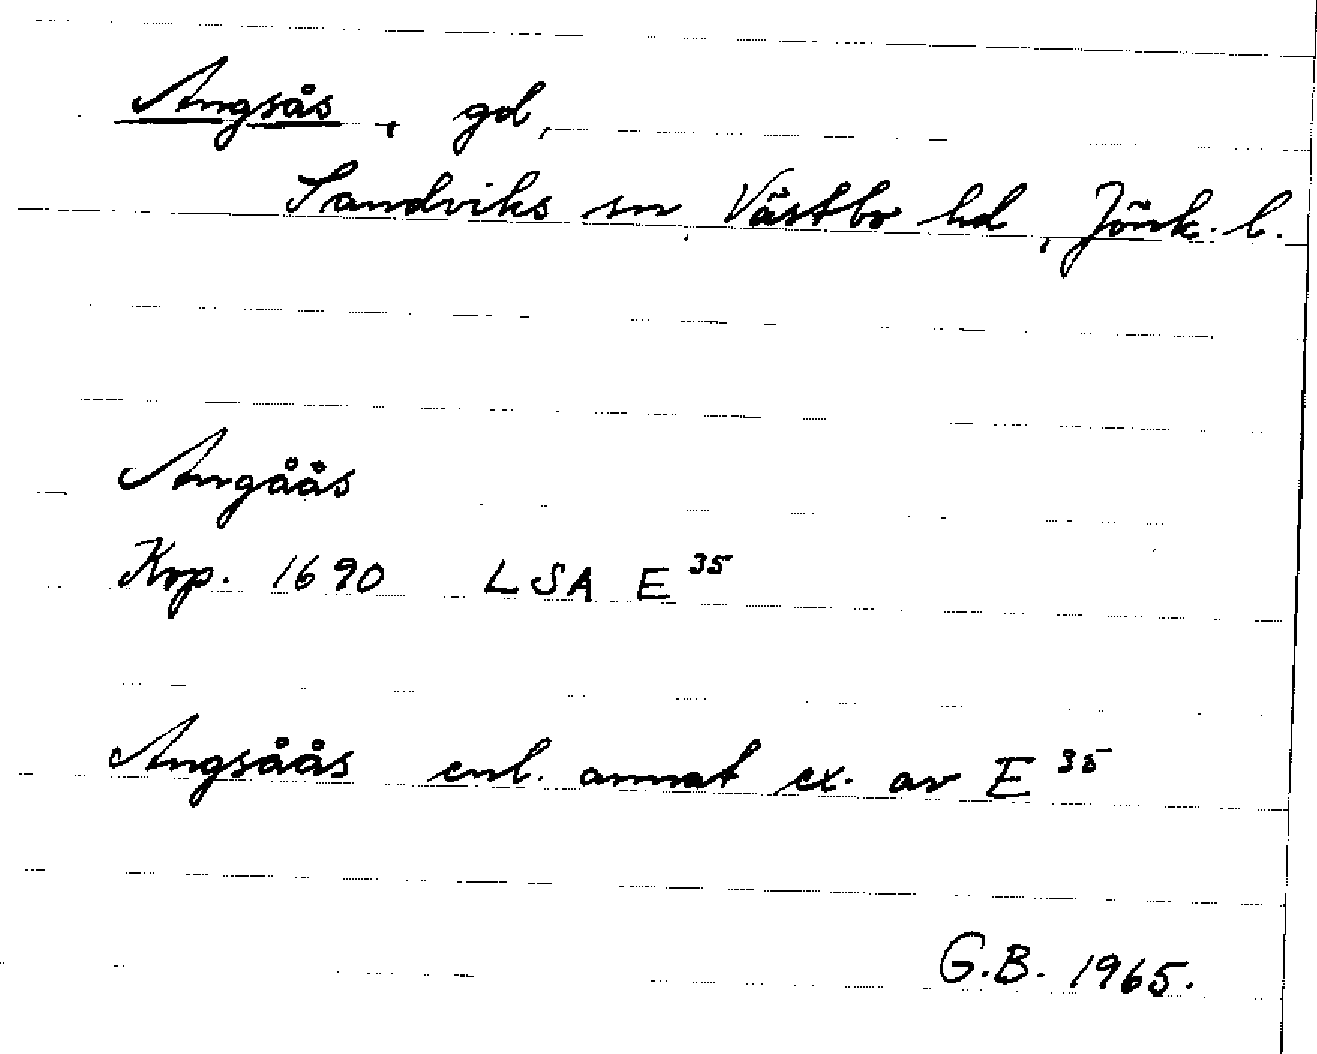 Angsås, gd,
Sandviks sn, Västbo hd, Jönk. l.
Angåås
Kop. 1690 LSA E 35
Angsåås enl. annat ex. av E 35
G.B. 1965.